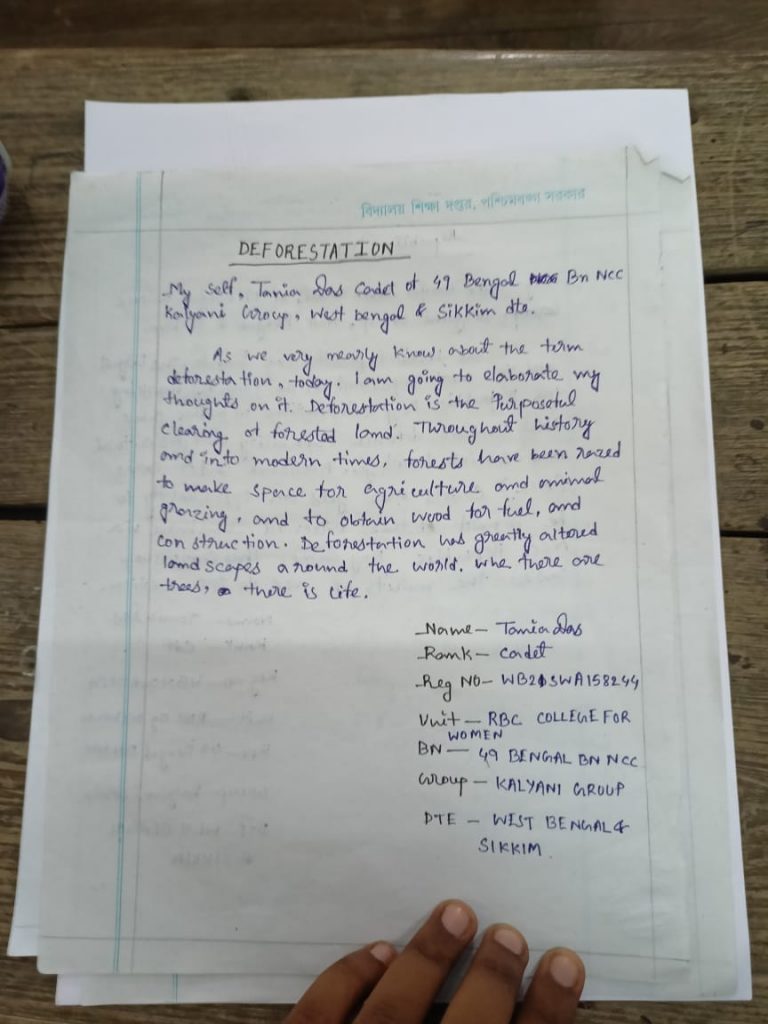 বিদ্যালয় শিক্ষা দপ্তর, পশ্চিমবঙ্গ সরকার
DEFORESTATION
My self, Tania Das Cadet of 49 Bengal Bn NCC
Kalyani Group, West bengal & Sikkim dte.
As we very nearly know about the term
deforestation, today. I am going to elaborate my
thoughts on it. Deforestation is the Purposeful
clearing of forested land. Throughout history
and into modern times, forests have been razed
to make space for agriculture and animal
grazing, and to obtain wood for fuel, and
construction. Deforestation has greatly altered
landscapes around the world. whe there are
trees, there is life.
Name - Tania Das
Rank - Cadet
Reg NO - WB21SWA158244
Unit - RBC COLLEGE FOR
WOMEN
BN - 49 BENGAL BN NCC
Group - KALYANI GROUP
DTE - WEST BENGAL &
SIKKIM